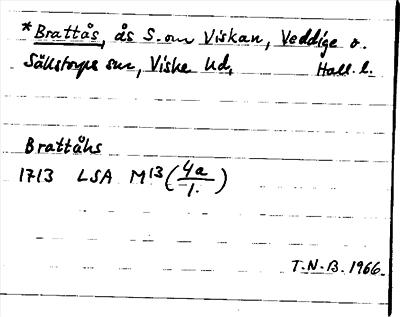 *Brattås, ås S. om Viskan, Veddige o.
Sällstorps snr, Viske hd, Hall. l.
Brattåhs
1713 LSA M13 (4a/1.)
T.N.B. 1966.